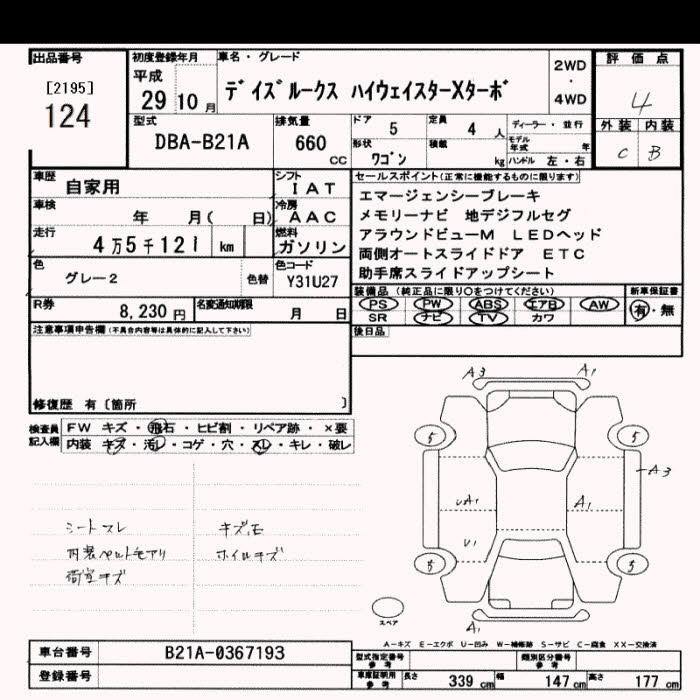 出品番号
[2195]
124
初度登録年月
平成
29 10 月
車名・グレード
デイズルークス ハイウェイスターXターボ
2WD
・
4WD
評価点
4
外装 内装
C B
型式
DBA-B21A
排気量
660 CC
ドア 5
定員 4 人
形状 ワゴン
積載 kg
ディーラー・並行
モデル年式 年
ハンドル 左・右
車歴 自家用
シフト IAT
車検 年 月( 日)
冷房 AAC
走行 4万5千121 km
燃料 ガソリン
色 グレー2 色替
色コード Y31U27
R券 8,230 円
名変通知期限 月 日
セールスポイント(正常に機能するものに限ります)
エマージェンシーブレーキ
メモリーナビ 地デジフルセグ
アラウンドビューM LEDヘッド
両側オートスライドドア ETC
助手席スライドアップシート
装備品 (純正品に限り○をつけてください)
PS PW ABS エアB AW
SR ナビ TV カワ
新車保証書
有・無
後日品
注意事項申告欄(不具合内容等は具体的に記入して下さい)
修復歴 有〔箇所 〕
検査員記入欄
FW キズ・飛石・ヒビ割・リペア跡・×要
内装 キズ・汚レ・コゲ・穴・スレ・キレ・破レ
シートスレ
内装ベルトモアリ
荷室キズ
キズ
ホイルキズ
A3 A1
5 5
A3
A1
A1
5 5
スペア
A1
A-キズ E-エクボ U-凹み W-補修跡 S-サビ C-腐食 XX-交換済
車台番号 B21A-0367193
登録番号
型式指定番号 参考
類別区分番号 参考
車庫証明用 参考
長さ 339 cm
幅 147 cm
高さ 177 cm